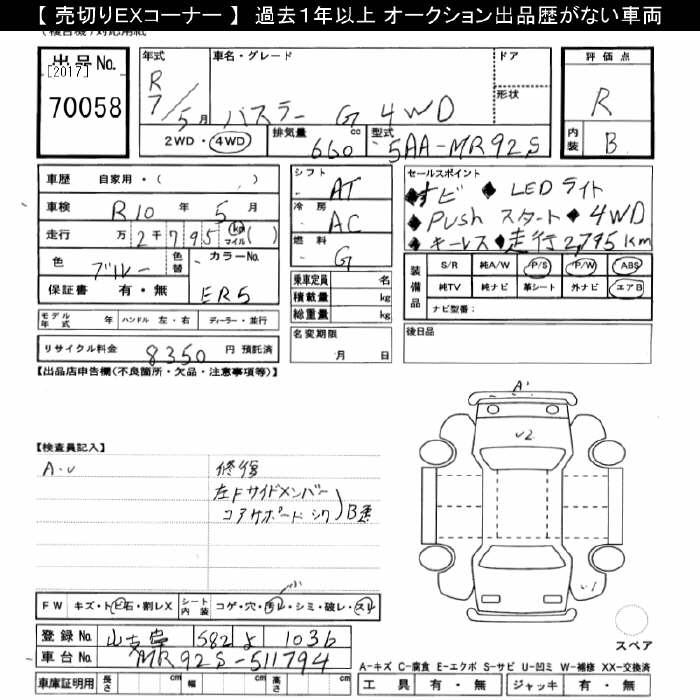 【 売切りEXコーナー 】 過去１年以上 オークション出品歴がない車両
出品No.
[2017]
70058
年式 R7/5月
車名・グレード
ハスラー G 4WD
ドア
形状
評価点
R
内装 B
2WD・4WD
排気量 660 cc
型式 5AA-MR92S
車歴 自家用・( )
車検 R10 年 5 月
走行 万 2 千 7 9 5 km マイル ( )
色 ブルー 色替
カラーNo. ER5
保証書 有・無
シフト AT
冷房 AC
燃料 G
乗車定員 名
積載量 kg
総重量 kg
セールスポイント
ナビ ◆ LEDライト
◆ Push スタート ◆ 4WD
◆ キーレス ◆ 走行2,795km
装備品
S/R 純A/W P/S P/W ABS
純TV 純ナビ 革シート 外ナビ エアB
ナビ型番：
モデル年式 年 ハンドル 左・右 ディーラー・並行
名変期限 月 日
後日品
リサイクル料金 8350 円 預託済
【出品店申告欄(不良箇所・欠品・注意事項等)】
【検査員記入】
A・U
修復
左Fサイドメンバー
コアサポート シワ
B裏
A'
U2
U1
FW キズ・トビ石・割レX シート内装 コゲ・穴・汚レ・シミ・破レ・スレ
小
スペア
登録No. 582 よ 1036
車台No. MR92S-511794
A-キズ C-腐食 E-エクボ S-サビ U-凹ミ W-補修 XX-交換済
車庫証明用 長さ cm 幅 cm 高さ cm
工具 有・無 ジャッキ 有・無